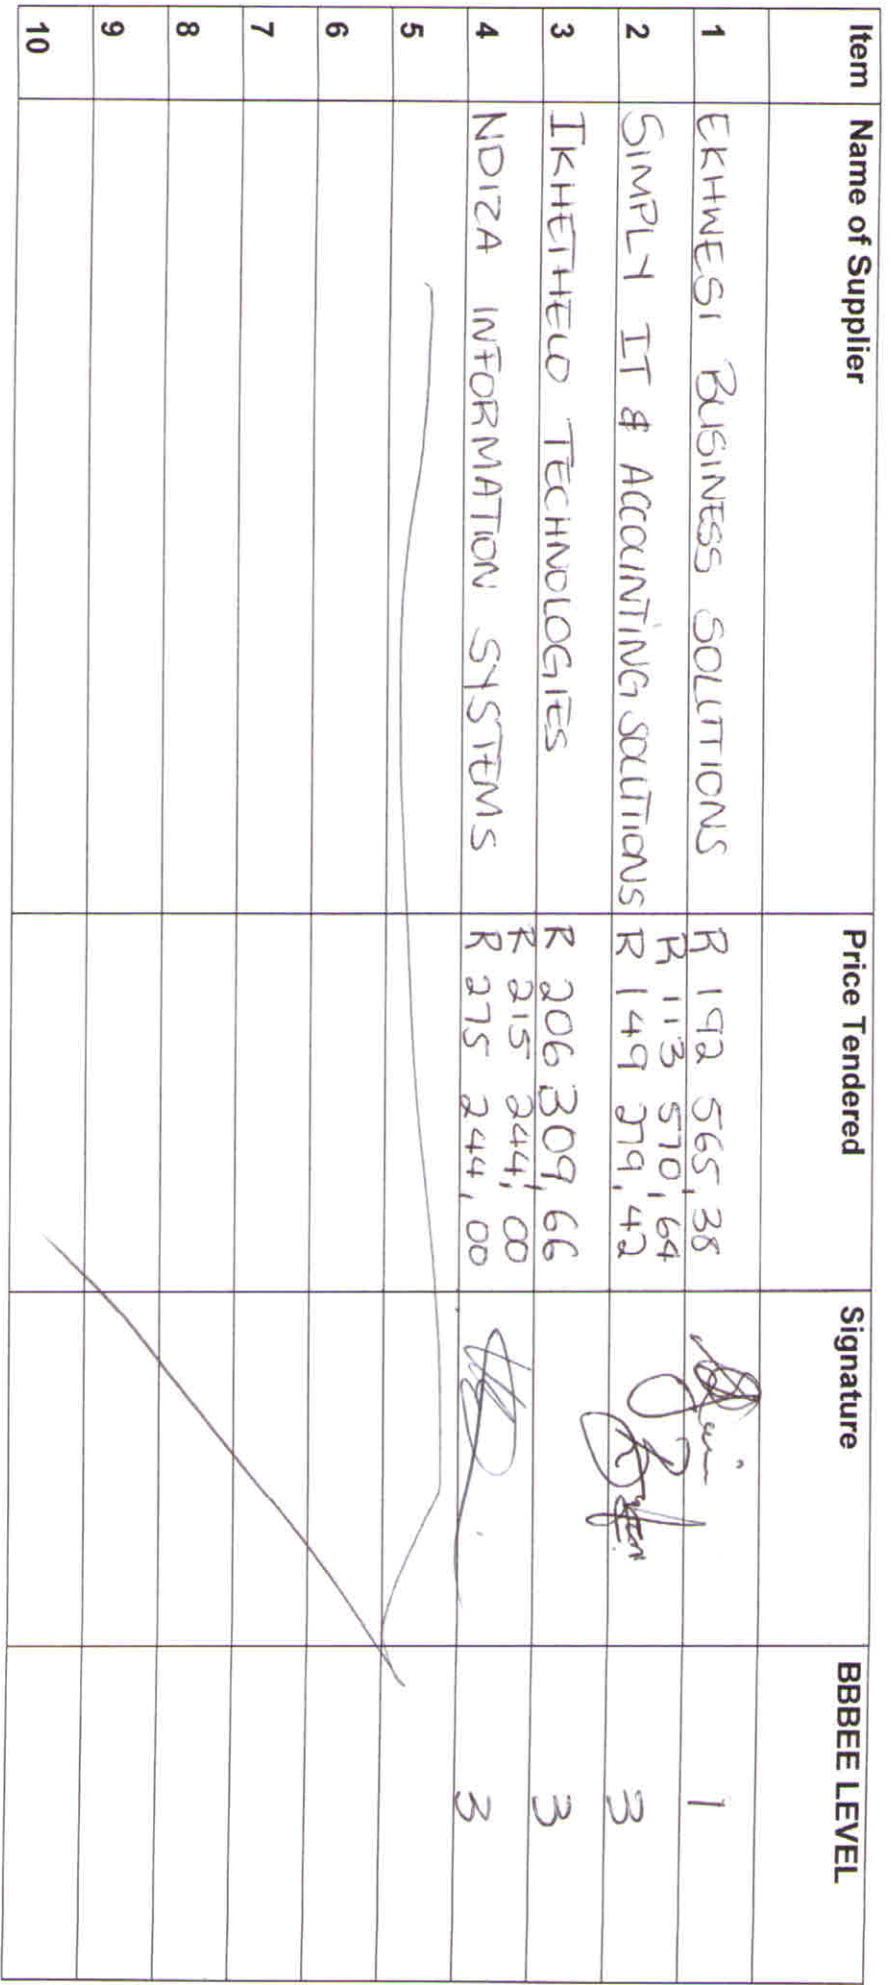 Item Name of Supplier Price Tendered Signature BBBEE LEVEL
1 EKHWESI BUSINESS SOLUTIONS R 192 565,38 1
R 113 570,64
2 SIMPLY IT & ACCOUNTING SOLUTIONS R 149 279,42 3
3 IKHETHELO TECHNOLOGIES R 206 309,66 3
R 215 244,00
4 NDIZA INFORMATION SYSTEMS R 275 244,00 3
5
6
7
8
9
10